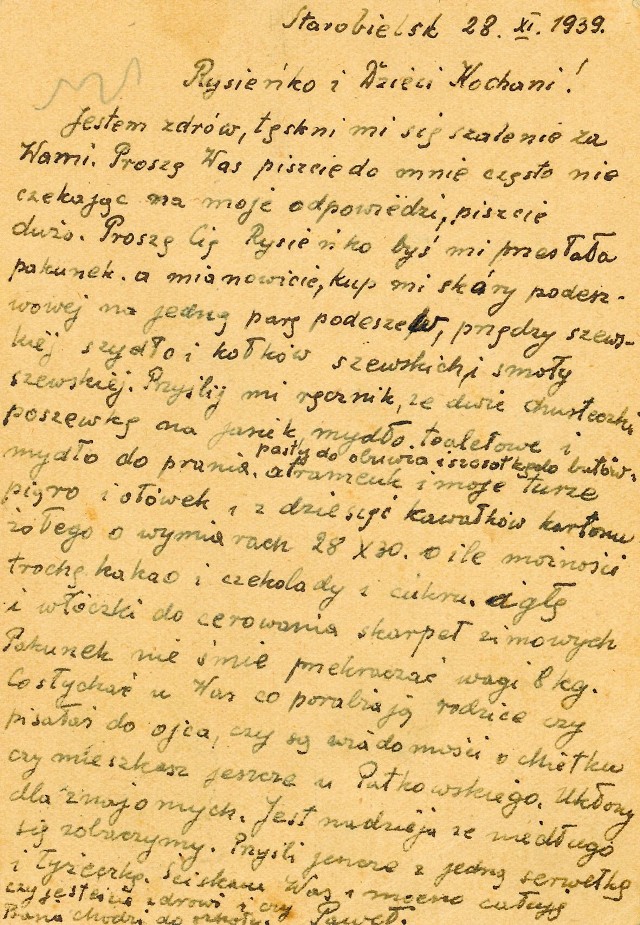 Starobielsk 28. XI. 1939.
Rysieńko i Dzieci Kochani!
Jestem zdrów, tęskni mi się szalenie za
Wami. Proszę Was piszcie do mnie często nie
czekając na moje odpowiedzi, piszcie
dużo. Proszę Cię Rysieńko byś mi przesłała
pakunek. a mianowicie, kup mi skóry podesz-
wowej na jedną parę podeszew, przędzy szews-
kiej szydło i kołków szewskich, i smoły
szewskiej. Przyślij mi ręcznik, ze dwie chusteczki,
poszewkę na jasiek mydło toaletowe i
pasty do obuwia i szczotkę do butów.
mydło do prania. atrament i moje
pióro i ołówek i z dziesięć kawałków kartonu
żółtego o wymiarach 28 X 30. o ile możności
trochę kakao i czekolady i cukru. igłę
i włóczki do cerowania skarpet zimowych
Pakunek nie śmie przekraczać wagi 8 kg.
Co słychać u Was co porabiają rodzice czy
pisałaś do ojca, czy są wiadomości o Mietku
czy mieszkasz jeszcze u Patkowskiego. Ukłony
dla znajomych. Jest nadzieja ze niedługo
się zobaczymy. Przyśli jeszcze z jedną serwetkę
i łyżeczkę. Ściskam Was i mocno całuję
czy jesteście zdrowi i czy
chodzi do szkoły. Paweł.